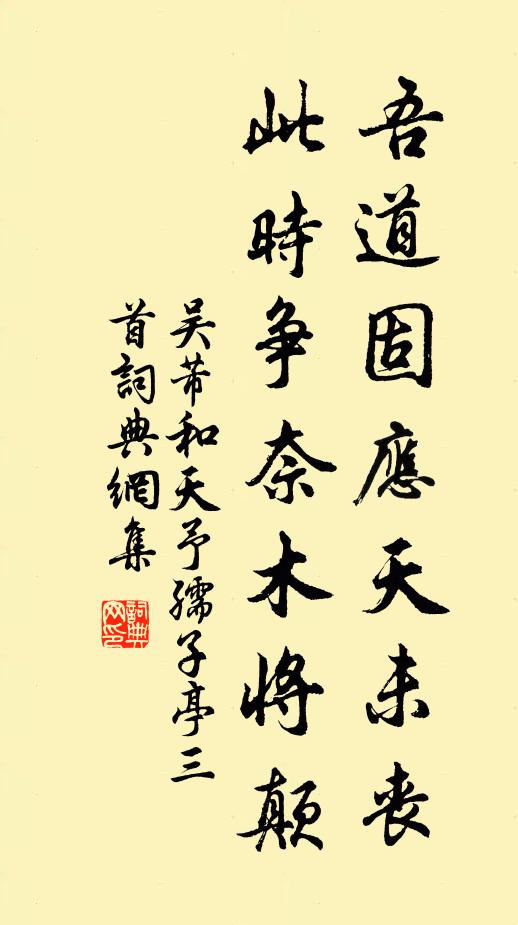 吾道固應天未喪
此時争奈木將顛
吴芾和天予孺子亭三
首詞典網集
詞典網印